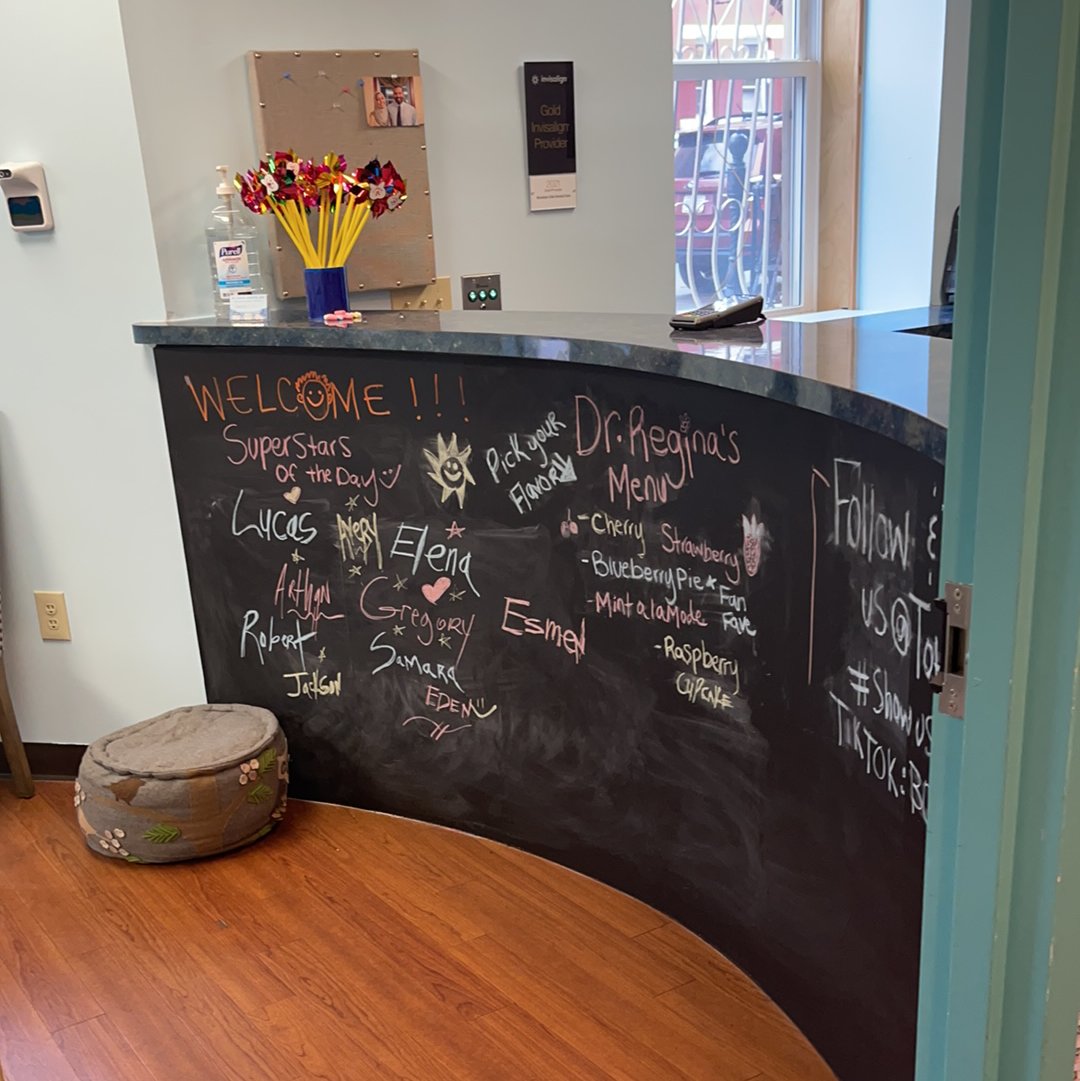 invisalign
Gold
Invisalign
Provider
2021
Purell
WELCOME !!!
SuperStars
Of the Day
Lucas
Avery
Elena
Arthur
Gregory
Robert
Samara
Esmen
Jackson
EDEN
Pick your
Flavor
Dr. Regina's
Menu
- Cherry
Strawberry
- Blueberry Pie * Fan
Fave
- Mint a la Mode
- Raspberry
Cupcake
Follow
us @
# Show us
TikTok: